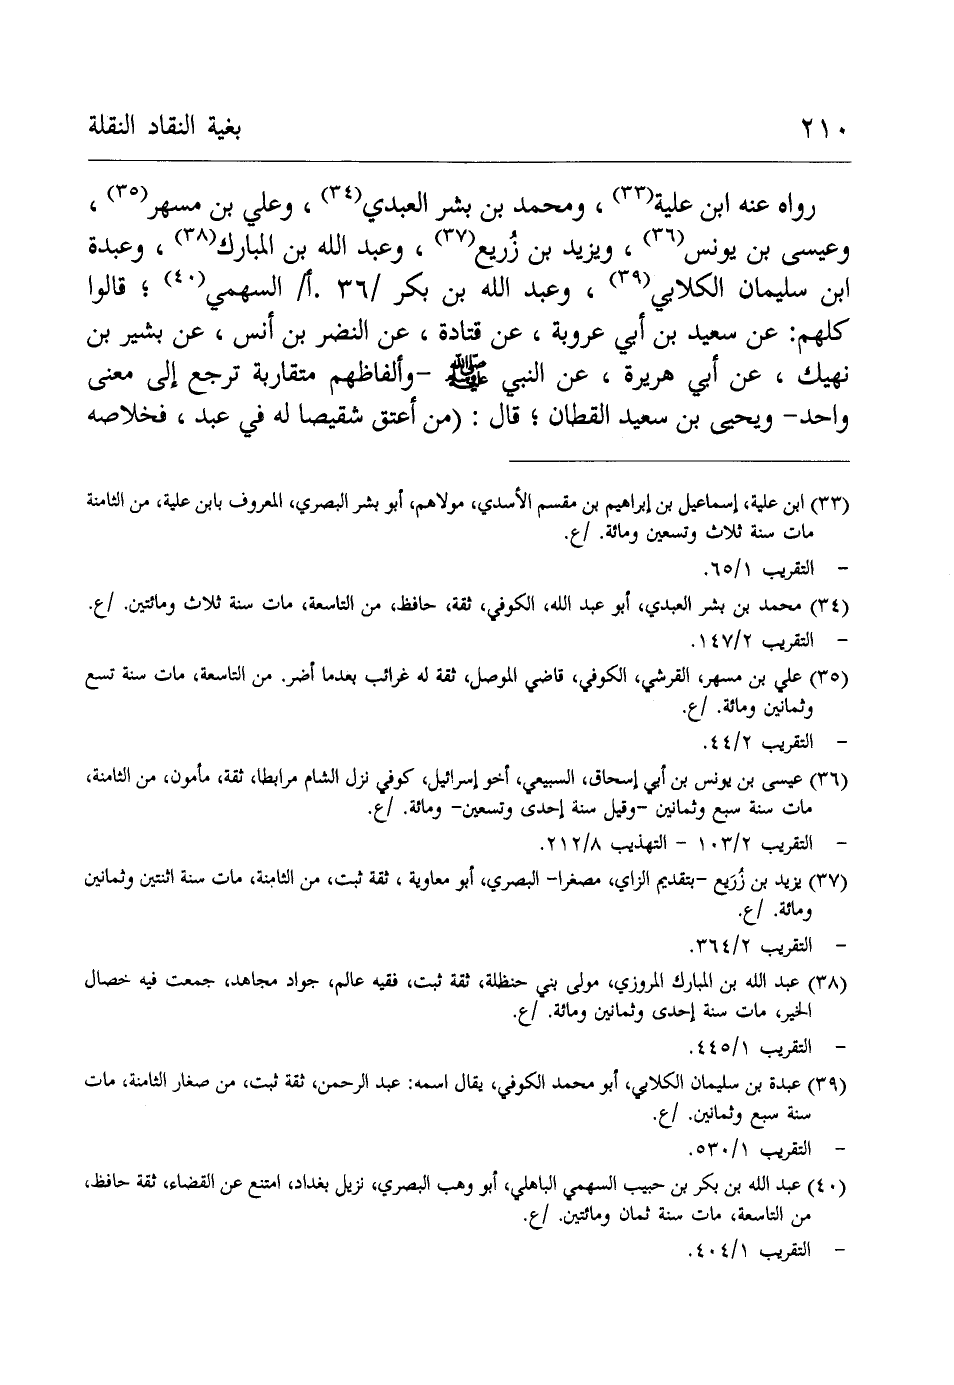 ٢١٠ بغية النقاد النقلة
رواه عنه ابن علية(٣٣) ، ومحمد بن بشر العبدي(٣٤) ، وعلي بن مسهر(٣٥) ،
وعيسى بن يونس(٣٦) ، ويزيد بن زُريع(٣٧) ، وعبد الله بن المبارك(٣٨) ، وعبدة
ابن سليمان الكلابي(٣٩) ، وعبد الله بن بكر /٣٦ .أ/ السهمي(٤٠) ؛ قالوا
كلهم: عن سعيد بن أبي عروبة ، عن قتادة ، عن النضر بن أنس ، عن بشير بن
نهيك ، عن أبي هريرة ، عن النبي ﷺ -وألفاظهم متقاربة ترجع إلى معنى
واحد- ويحيى بن سعيد القطان ؛ قال : (من أعتق شقيصا له في عبد ، فخلاصه
(٣٣) ابن علية، إسماعيل بن إبراهيم بن مقسم الأسدي، مولاهم، أبو بشر البصري، المعروف بابن علية، من الثامنة
مات سنة ثلاث وتسعين ومائة. /ع.
- التقريب ٦٥/١.
(٣٤) محمد بن بشر العبدي، أبو عبد الله، الكوفي، ثقة، حافظ، من التاسعة، مات سنة ثلاث ومائتين. /ع.
- التقريب ١٤٧/٢.
(٣٥) علي بن مسهر، القرشي، الكوفي، قاضي الموصل، ثقة له غرائب بعدما أضر. من التاسعة، مات سنة تسع
وثمانين ومائة. /ع.
- التقريب ٤٤/٢.
(٣٦) عيسى بن يونس بن أبي إسحاق، السبيعي، أخو إسرائيل، كوفي نزل الشام مرابطا، ثقة، مأمون، من الثامنة،
مات سنة سبع وثمانين -وقيل سنة إحدى وتسعين- ومائة. /ع.
- التقريب ١٠٣/٢ - التهذيب ٢١٢/٨.
(٣٧) يزيد بن زُرَيع -بتقديم الزاي، مصغرا- البصري، أبو معاوية ، ثقة ثبت، من الثامنة، مات سنة اثنتين وثمانين
ومائة. /ع.
- التقريب ٣٦٤/٢.
(٣٨) عبد الله بن المبارك المروزي، مولى بني حنظلة، ثقة ثبت، فقيه عالم، جواد مجاهد، جمعت فيه خصال
الخير، مات سنة إحدى وثمانين ومائة. /ع.
- التقريب ٤٤٥/١.
(٣٩) عبدة بن سليمان الكلابي، أبو محمد الكوفي، يقال اسمه: عبد الرحمن، ثقة ثبت، من صغار الثامنة، مات
سنة سبع وثمانين. /ع.
- التقريب ٥٣٠/١.
(٤٠) عبد الله بن بكر بن حبيب السهمي الباهلي، أبو وهب البصري، نزيل بغداد، امتنع عن القضاء، ثقة حافظ،
من التاسعة، مات سنة ثمان ومائتين. /ع.
- التقريب ٤٠٤/١.